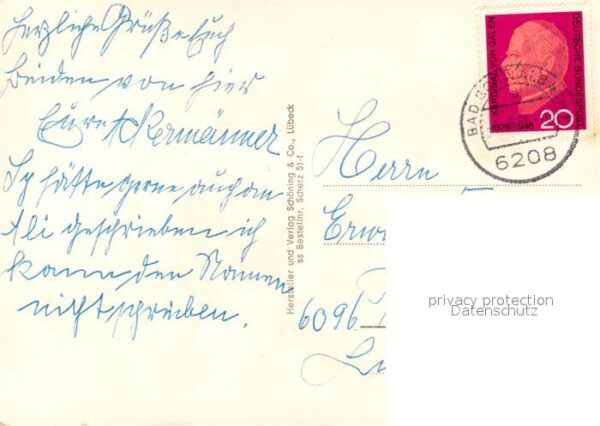 Herzliche Grüße Euch
Beiden von hier
Eure Ackermänner
Ich hätte gerne auch an
Ali geschrieben ich
kann den Namen
nicht schreiben.
Hersteller und Verlag Schöning & Co., Lübeck
ss Bestellnr. Scherz 51-f
KARDINAL VON GALEN
1878-1946
DEUTSCHE BUNDESPOST
20
BAD
6208
Herrn
Erw
6096
privacy protection
Datenschutz